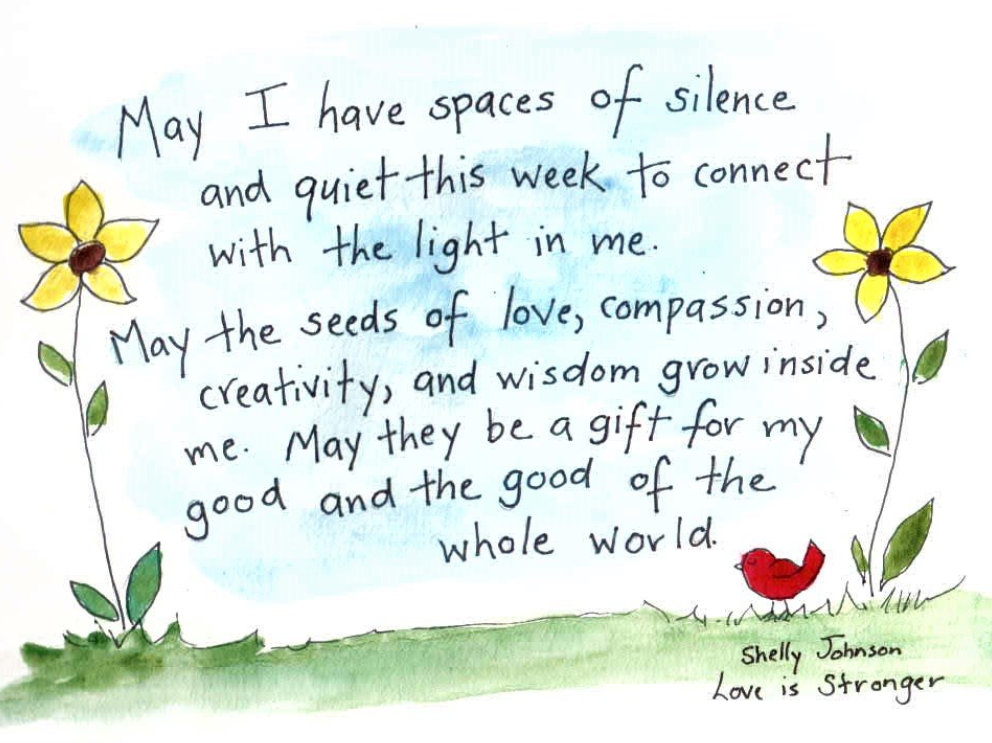 May I have spaces of silence
and quiet this week to connect
with the light in me.
May the seeds of love, compassion,
creativity, and wisdom grow inside
me. May they be a gift for my
good and the good of the
whole world.
Shelly Johnson
Love is Stronger